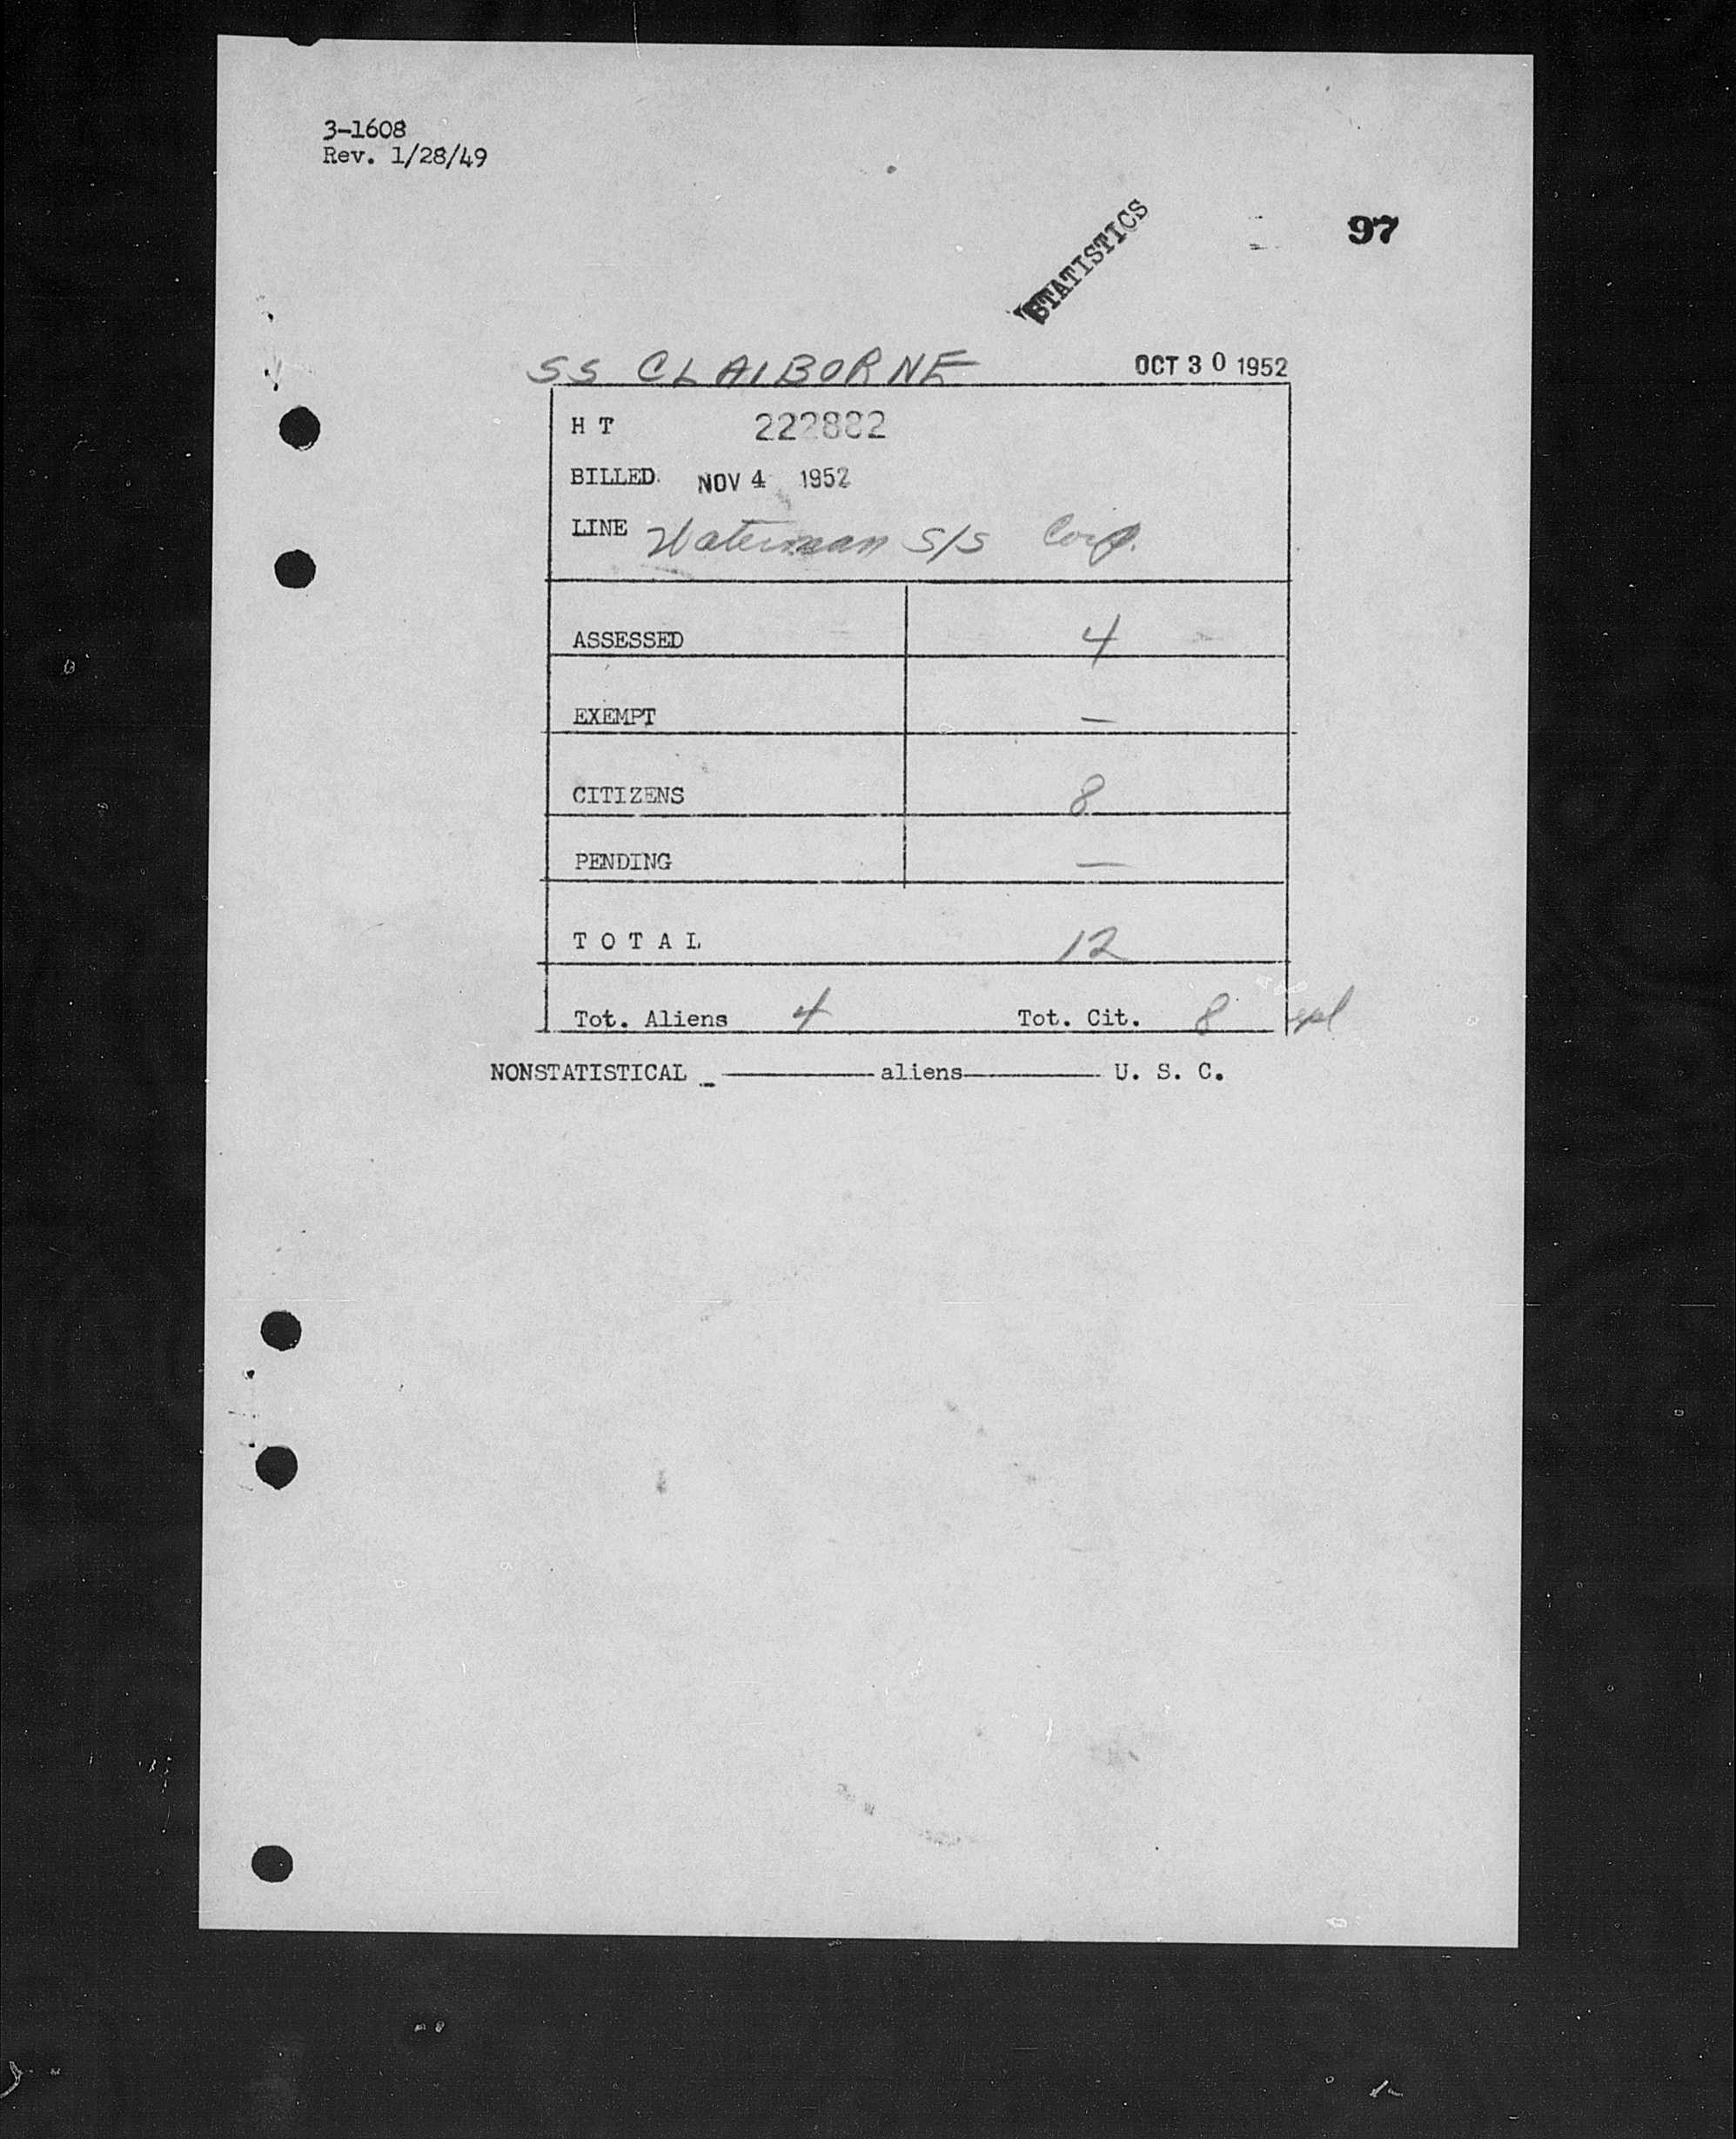 3-1608
Rev. 1/28/49
STATISTICS
97
SS CLAIBORNE OCT 30 1952
H T 222882
BILLED. NOV 4 1952
LINE Waterman S/S Corp.
ASSESSED 4
EXEMPT —
CITIZENS 8
PENDING —
T O T A L 12
Tot. Aliens 4 Tot. Cit. 8
NONSTATISTICAL _ ———— aliens———— U. S. C.